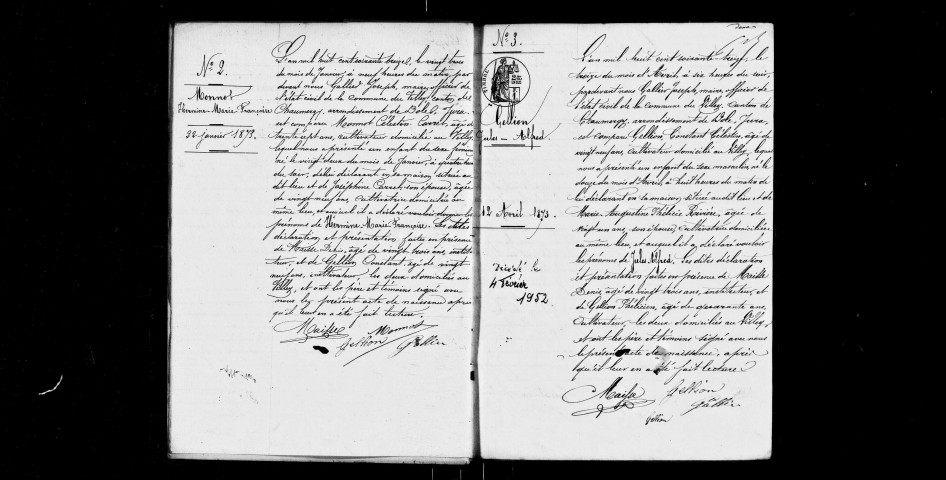 N° 2.
Monnot
Hermine-Marie-Françoise
22 janvier 1873.
L'an mil huit cent soixante treize, le vingt trois
du mois de Janvier, à neuf heures du matin, par
devant nous Gallier Joseph, maire, officier de
l'état civil de la commune du Villey, canton de
Chaumergy, arrondissement de Dole, Jura,
est comparu Monnot Célestin Carret, âgé de
trente sept ans, cultivateur domicilié au Villey,
lequel nous a présenté un enfant du sexe féminin
né le vingt deux du mois de Janvier, à quatre heures
du soir, de lui déclarant en sa maison située au
dit lieu et de Joséphine Carret, son épouse, âgée
de vingt-neuf ans, cultivatrice domiciliée au
même lieu, et auquel il a déclaré vouloir donner les
prénoms de Hermine-Marie-Françoise. Les dites
déclaration et présentation faites en présence
de Maille Denis, âgé de vingt trois ans, institu-
teur, et de Gellion Constant, âgé de vingt
neuf ans, cultivateur, les deux domiciliés au
Villey, et ont les père et témoins signé avec
nous le présent acte de naissance après
qu'il leur en a été fait lecture.
Monnot
Gellion
Gallier
N° 3.
Gellion
Jules-Alfred
12 Avril 1873.
décédé le
4 Février
1952
L'an mil huit cent soixante treize, le
treize du mois d'Avril, à six heures du soir,
pardevant nous Gallier Joseph, maire, officier de
l'état civil de la commune du Villey, canton de
Chaumergy, arrondissement de Dole, Jura,
est comparu Gellion Constant Célestin, âgé de
vingt neuf ans, cultivateur domicilié au Villey, lequel
nous a présenté un enfant du sexe masculin, né le
douze du mois d'Avril, à huit heures du matin de
lui déclarant en sa maison située audit lieu et de
Marie Augustine Félicie Rivière, âgée de
vingt-un ans, son épouse, cultivatrice domiciliée
au même lieu et auquel il a déclaré vouloir
les prénoms de Jules Alfred. Les dites déclaration
et présentation faites en présence de Maille
Denis, âgé de vingt trois ans, instituteur, et
de Gellion Félicien, âgé de quarante ans,
cultivateur, les deux domiciliés au Villey,
et ont les père et témoins signé avec nous
le présent acte de naissance, après
qu'il leur en a été fait lecture.
Gellion
Gallier
Gellion